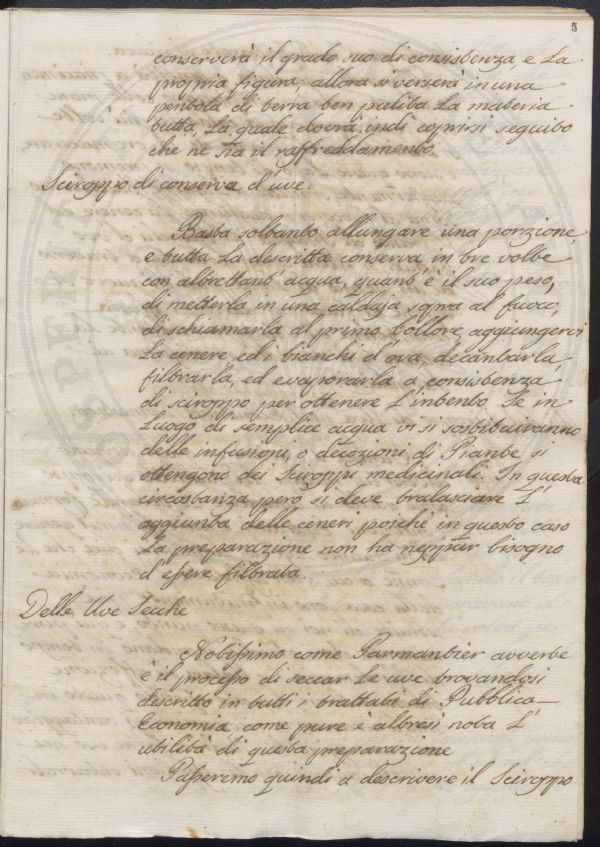 5
conserverà il grado suo di consistenza e La
propria figura, allora si verserà in una
pentola di terra ben pulita La materia
tutta, La quale dovrà indi coprirsi seguito
che ne sia il raffreddamento.
Sciroppo di conserva d'uve.
Basta soltanto allungare una porzione,
e tutta La descritta conserva in tre volte
con altrettant' acqua, quant' è il suo peso,
di metterla in una caldaja sopra al fuoco,
di schiamarla al primo bollore, aggiungerci
La cenere, ed i bianchi d'ova, decantarla,
filtrarla, ed evaporarla a consistenza
di sciroppo per ottenere L'intento. Se in
Luogo di semplice acqua vi si sostituiranno
delle infusioni, o decozioni di Piante si
ottengono dei Sciroppi medicinali. In questa
circostanza però si deve tralasciare L'
aggiunta delle ceneri poichè in questo caso
La preparazione non ha neppur bisogno
d'essere filtrata.
Delle Uve Secche
Notissimo come Parmantier avverte
è il processo di seccar Le uve trovandosi
descritto in tutti i trattati di Pubblica
Economia, come pure è altresì nota L'
utilità di questa preparazione
Passeremo quindi a descrivere il Sciroppo